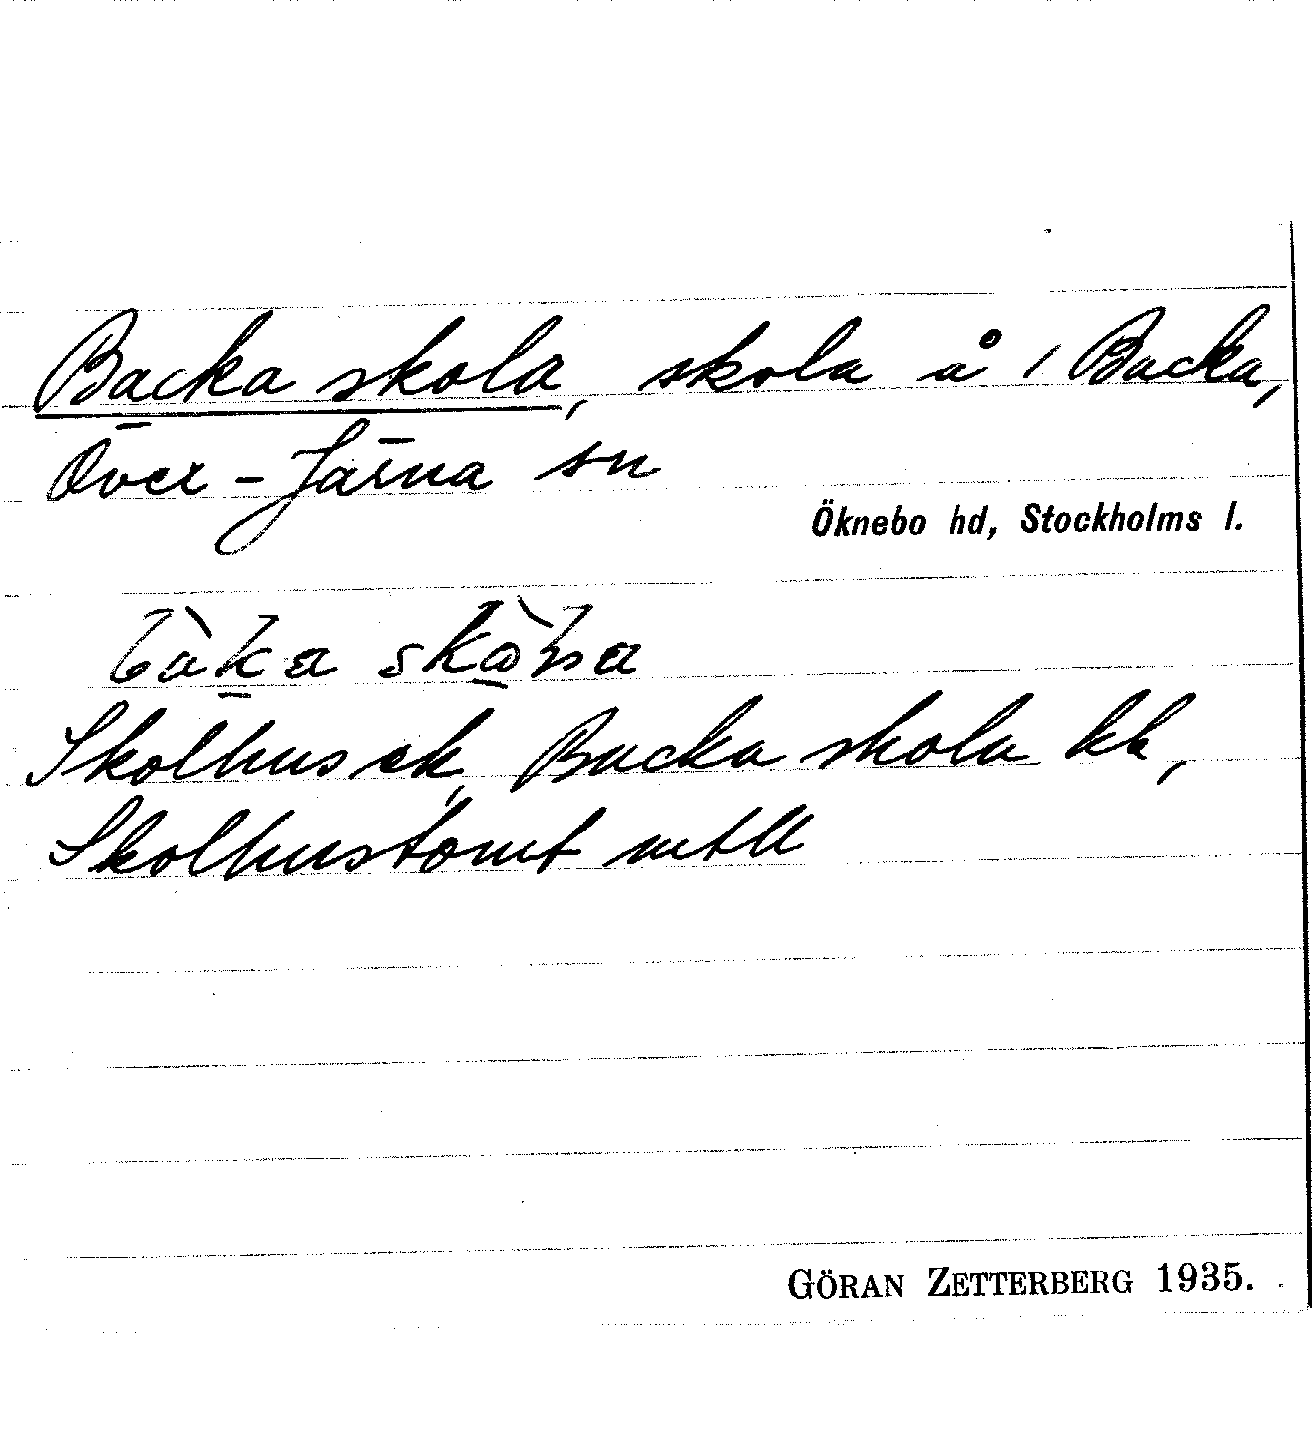 Backa skola, skola å 1 Backa,
Över-Järna sn
Öknebo hd, Stockholms l.
bàka
Skolhus ek, Backa skola kk,
Skolhustomt mtll
GÖRAN ZETTERBERG 1935.